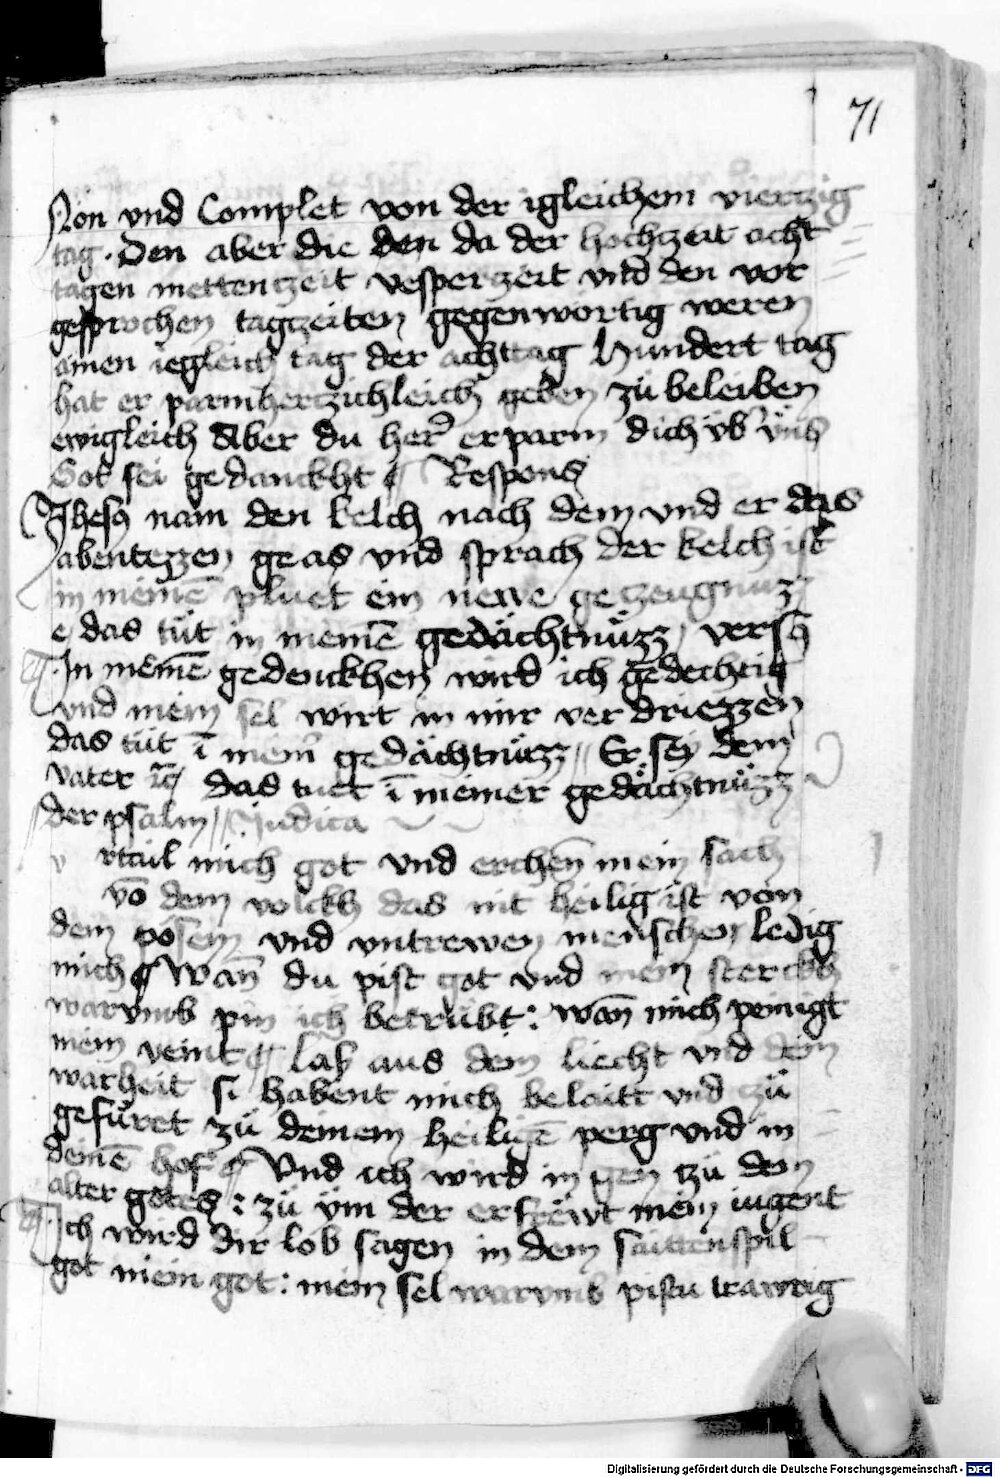 71
Non vnd Complet von der igleichem viertzig
tag. Den aber die den da der hochzeit acht
tagen mettenczeit vesperczeit vnd den vor
gesprochen tagczeiten gegenwortig weren
ainen iegleich tag der achttag Hundert tag
hat er parmherczichleich geben zü beleiben
ewigleich Aber du her erparm dich vb vns
Got sei gedanckht Respons
Jhesus nam den kelch nach dem vnd er das
abentezzen geas vnd sprach der kelch ist
in meinē pluet ein newe geczeugnuzz
e das tüt in meinē gedächtnüzz / vers
In meinē gedenckhen wird ich gedechtig
vnd mein sel wirt in mir ver driezzen
das tüt ī meinr gedächtnüzz // Er sey dem
vater das tuet ī meiner gedächtnüzz
der psalm // Judica
v rtail mich got vnd erchen̄ mein sach
vō dem volckh das nit heilig ist von
dem pösem vnd vntrewen menschen ledig
mich ¶ Wan̄ du pist got vnd mein sterckh
warvmb pin ich betrübt: wan̄ mich peinigt
mein veint ¶ laß aus dein liecht vnd dein
warheit si habent mich belaitt vnd czü
gefüret zü deinem heiligē perg vnd in
deinē hof ¶ Vnd ich wird in gen tzü dem
alter gotes: zü ym der erfrëwt mein iugent
Ich wird dir lob sagen in dem saittenspil
got mein got: mein sel warvmb pistu trawrig
Digitalisierung gefördert durch die Deutsche Forschungsgemeinschaft - DFG